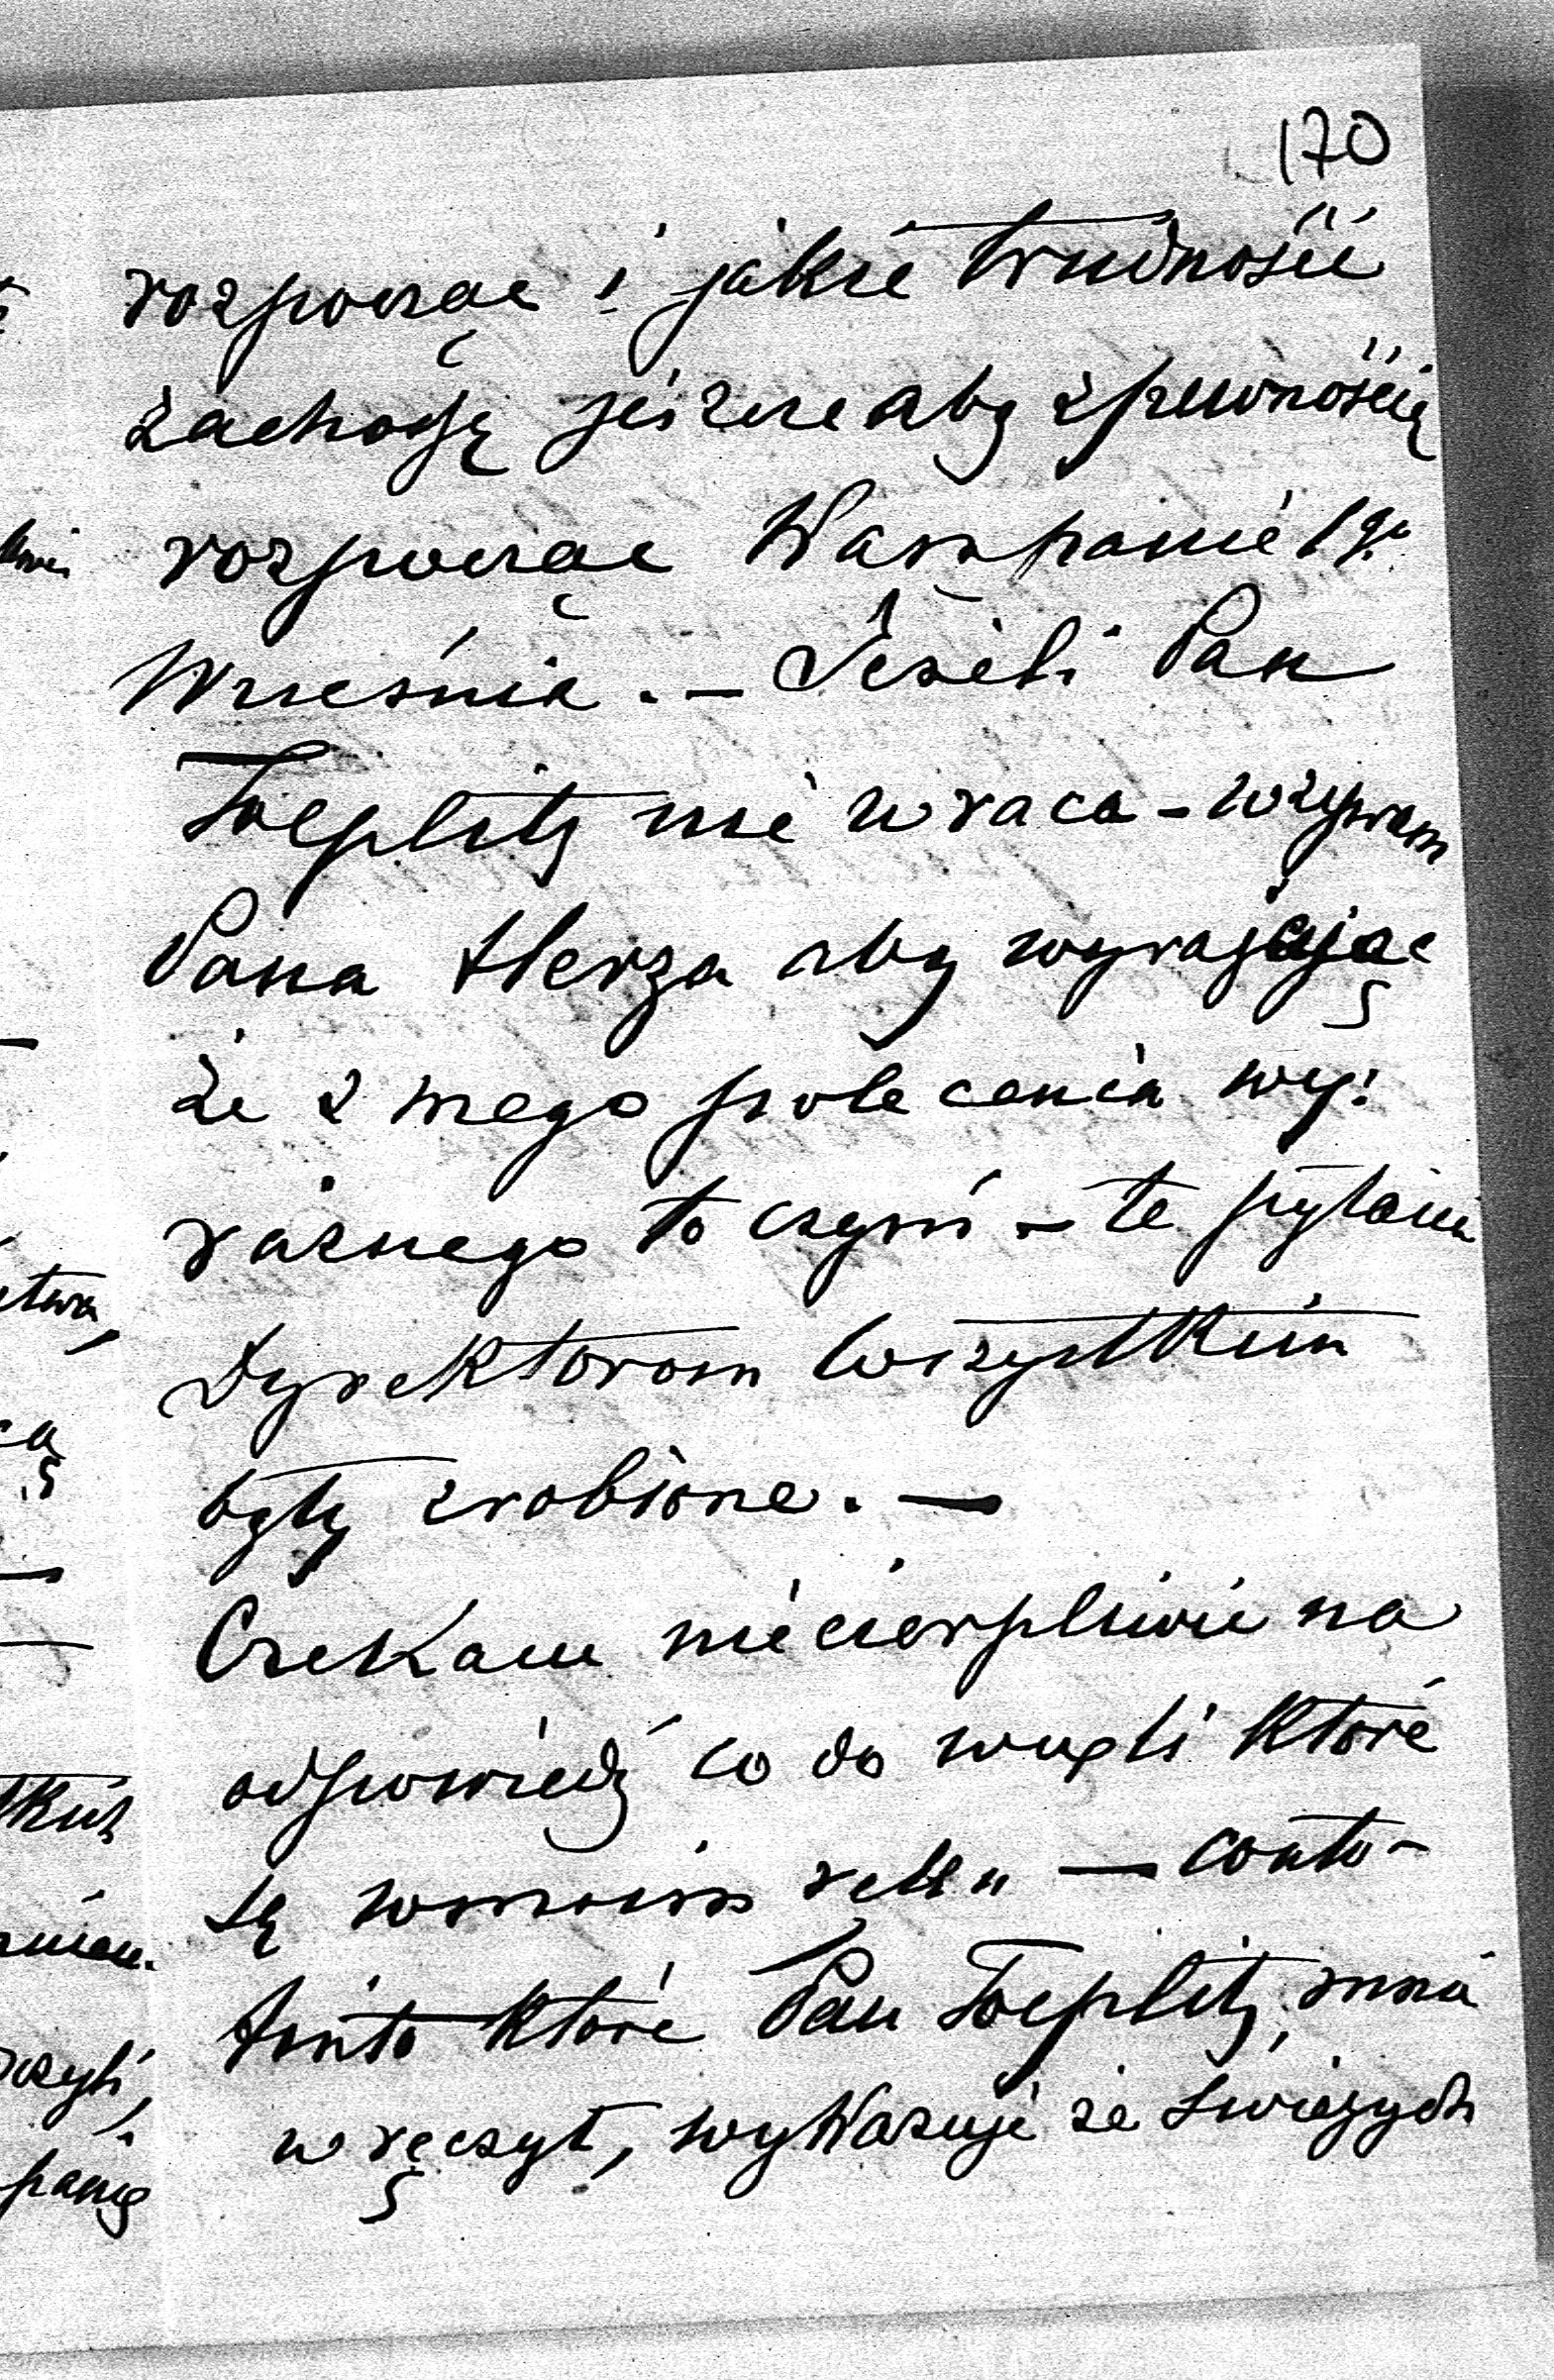 170
rozpocząć i jakie trudności
zachodzą jeszcze aby z pewnością
rozpocząć Kampanie 1go
Września. — Jeżeli Pan
Toeplitz nie wraca – wzywam
Pana Herza aby wyrażając
że z mego polecenia wy:
raźnego to czyni – te pytania
Dyrektorom wszystkim
były zrobione. —
Czekam niecierpliwie na
odpowiedź co do węgli które
są w moim ręku — conto-
finto które Pan Toeplitz mnie
wręczył, wykazuje że świeżych